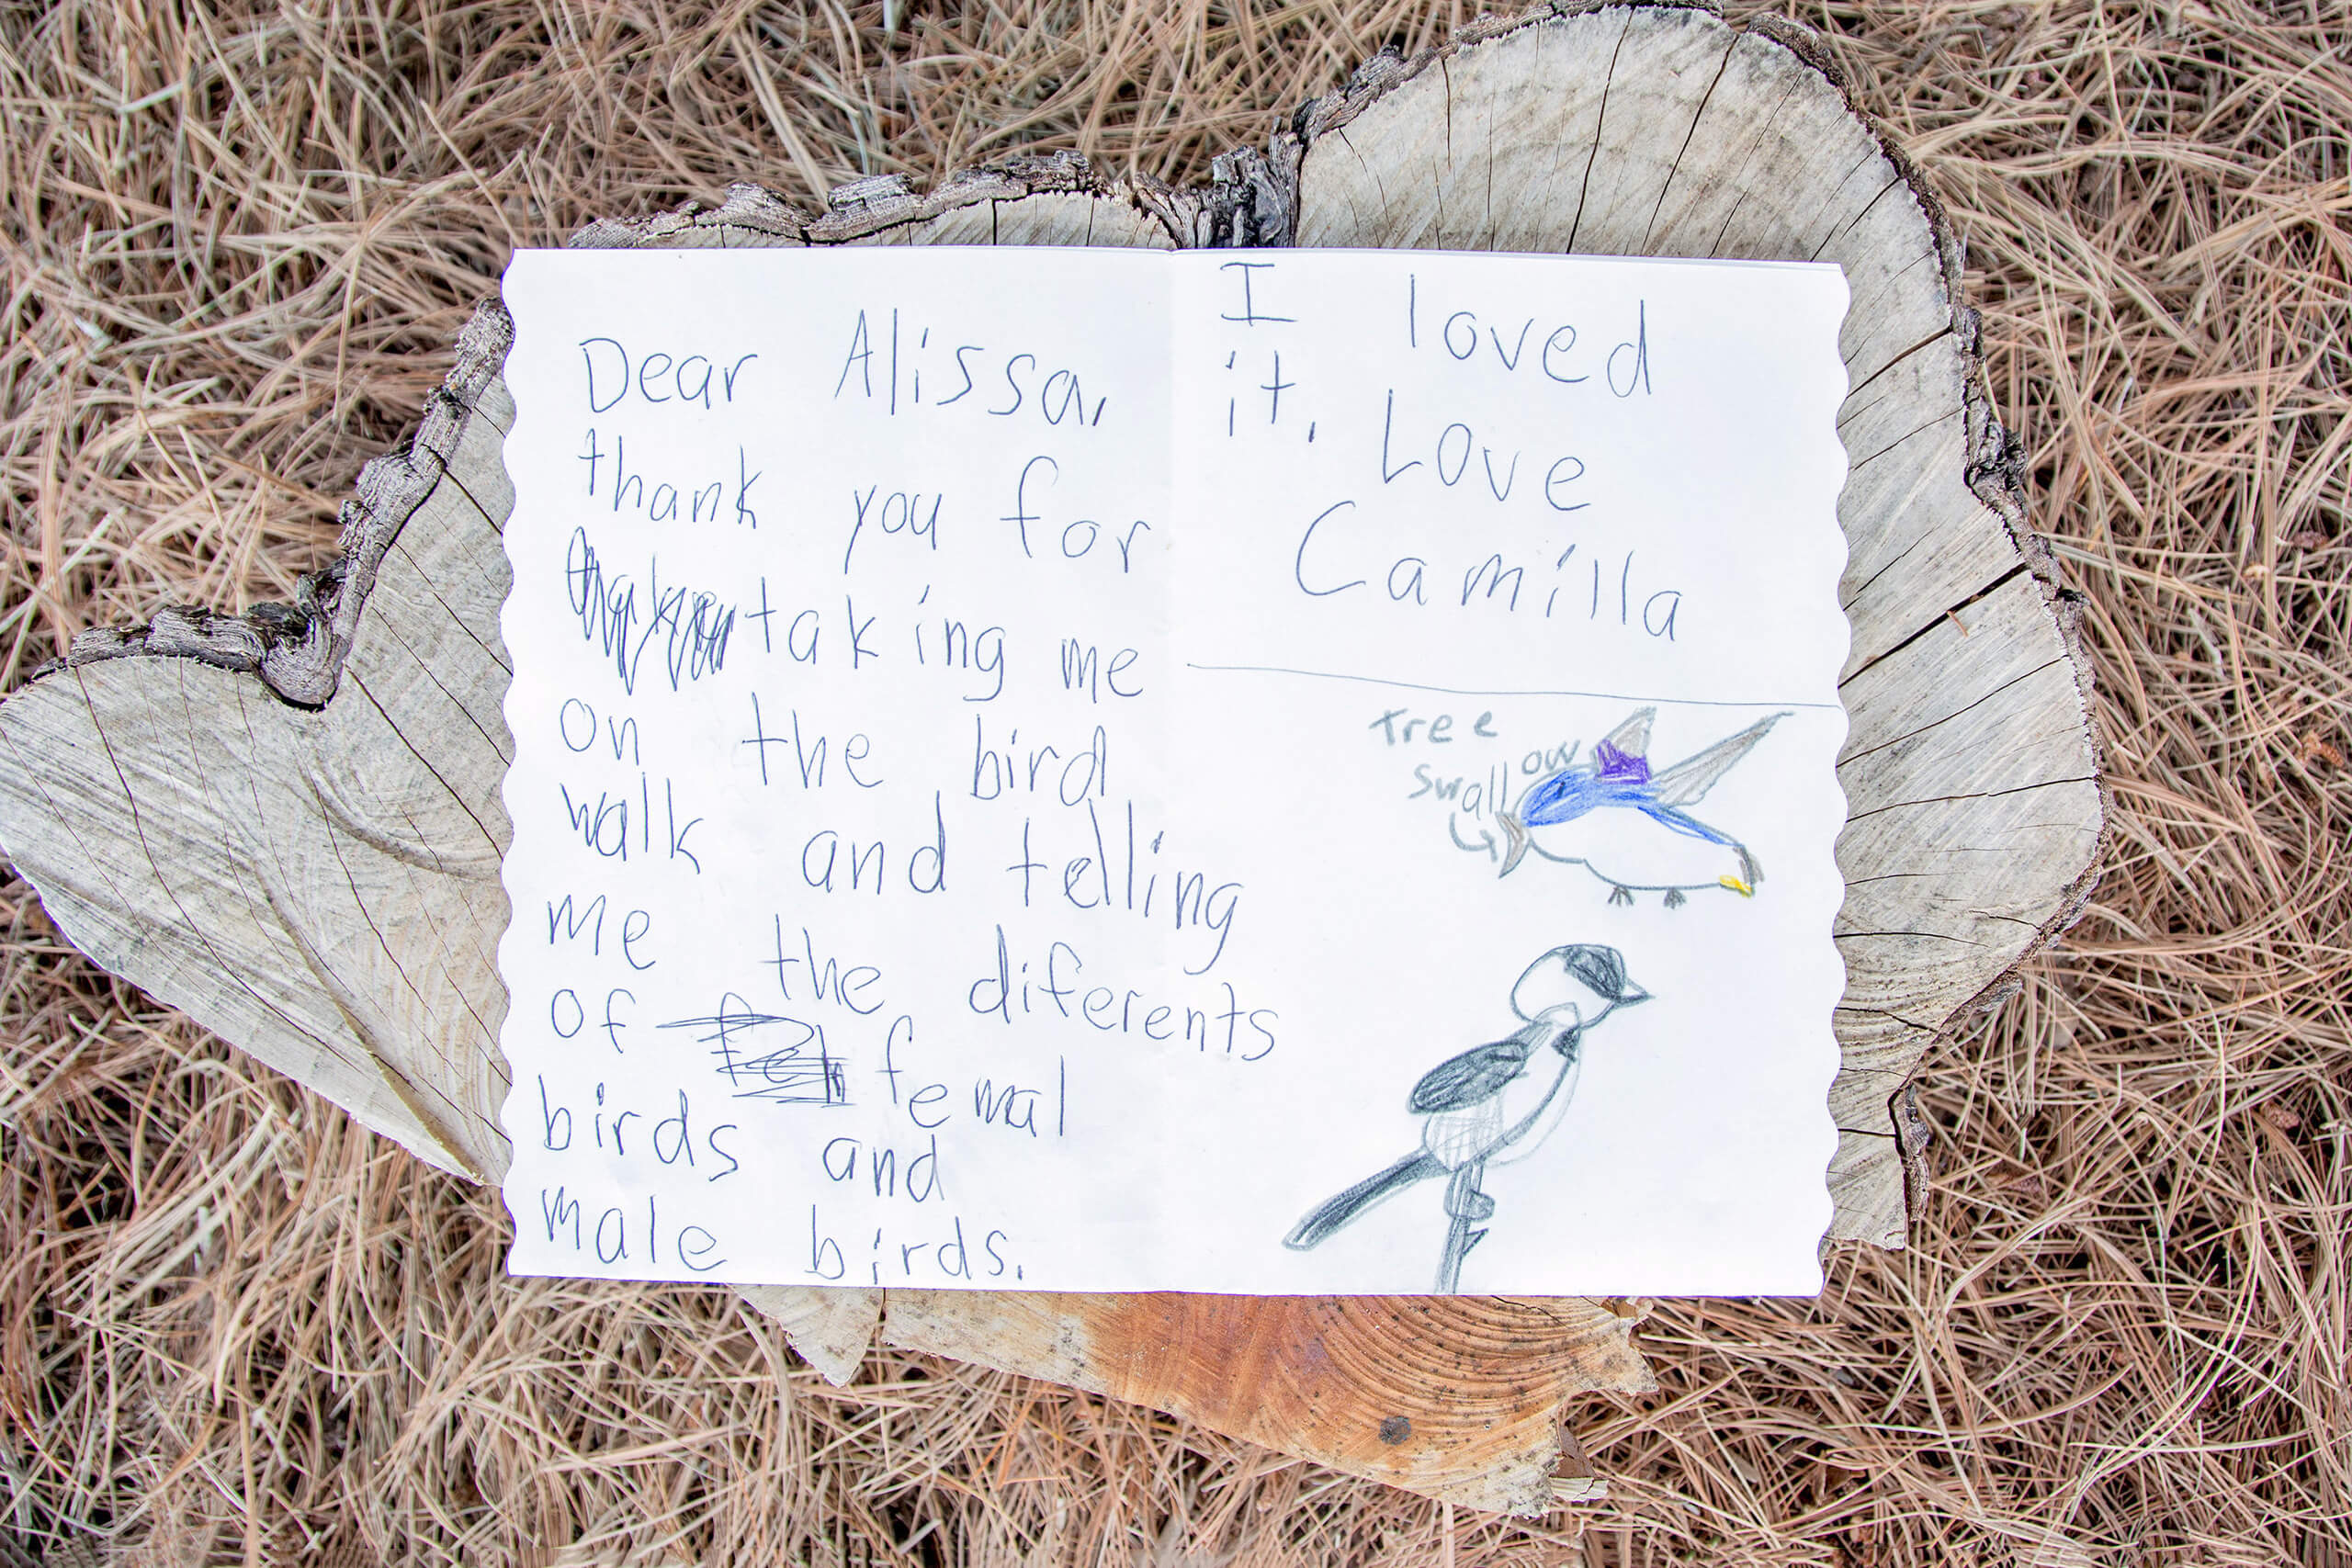 Dear Alissa,
thank you for
taking me
on the bird
walk and telling
me the diferents
of femal
birds and
male birds.
I loved
it. Love
Camilla
tree
swallow